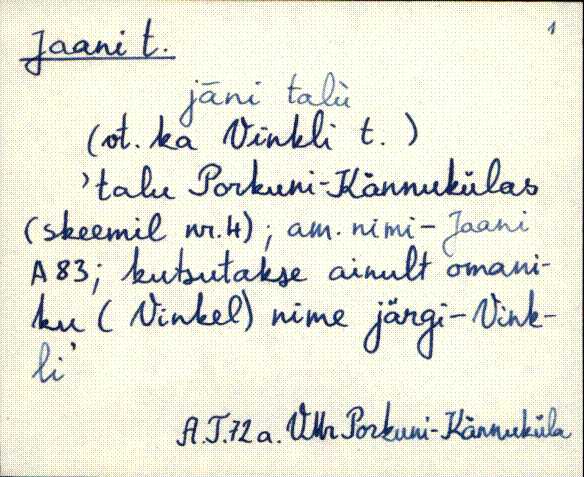 1
Jaani t.
jāni talù
(ot. ka Vinkli t.)
'talu Porkuni-Kännukülas
(skeemil nr. 4); am. nimi - Jaani
A 83; kutsutakse ainult omani-
ku (Vinkel) nime järgi - Vink-
li'
A.T. 72 a. VMr Porkuni-Kännuküla